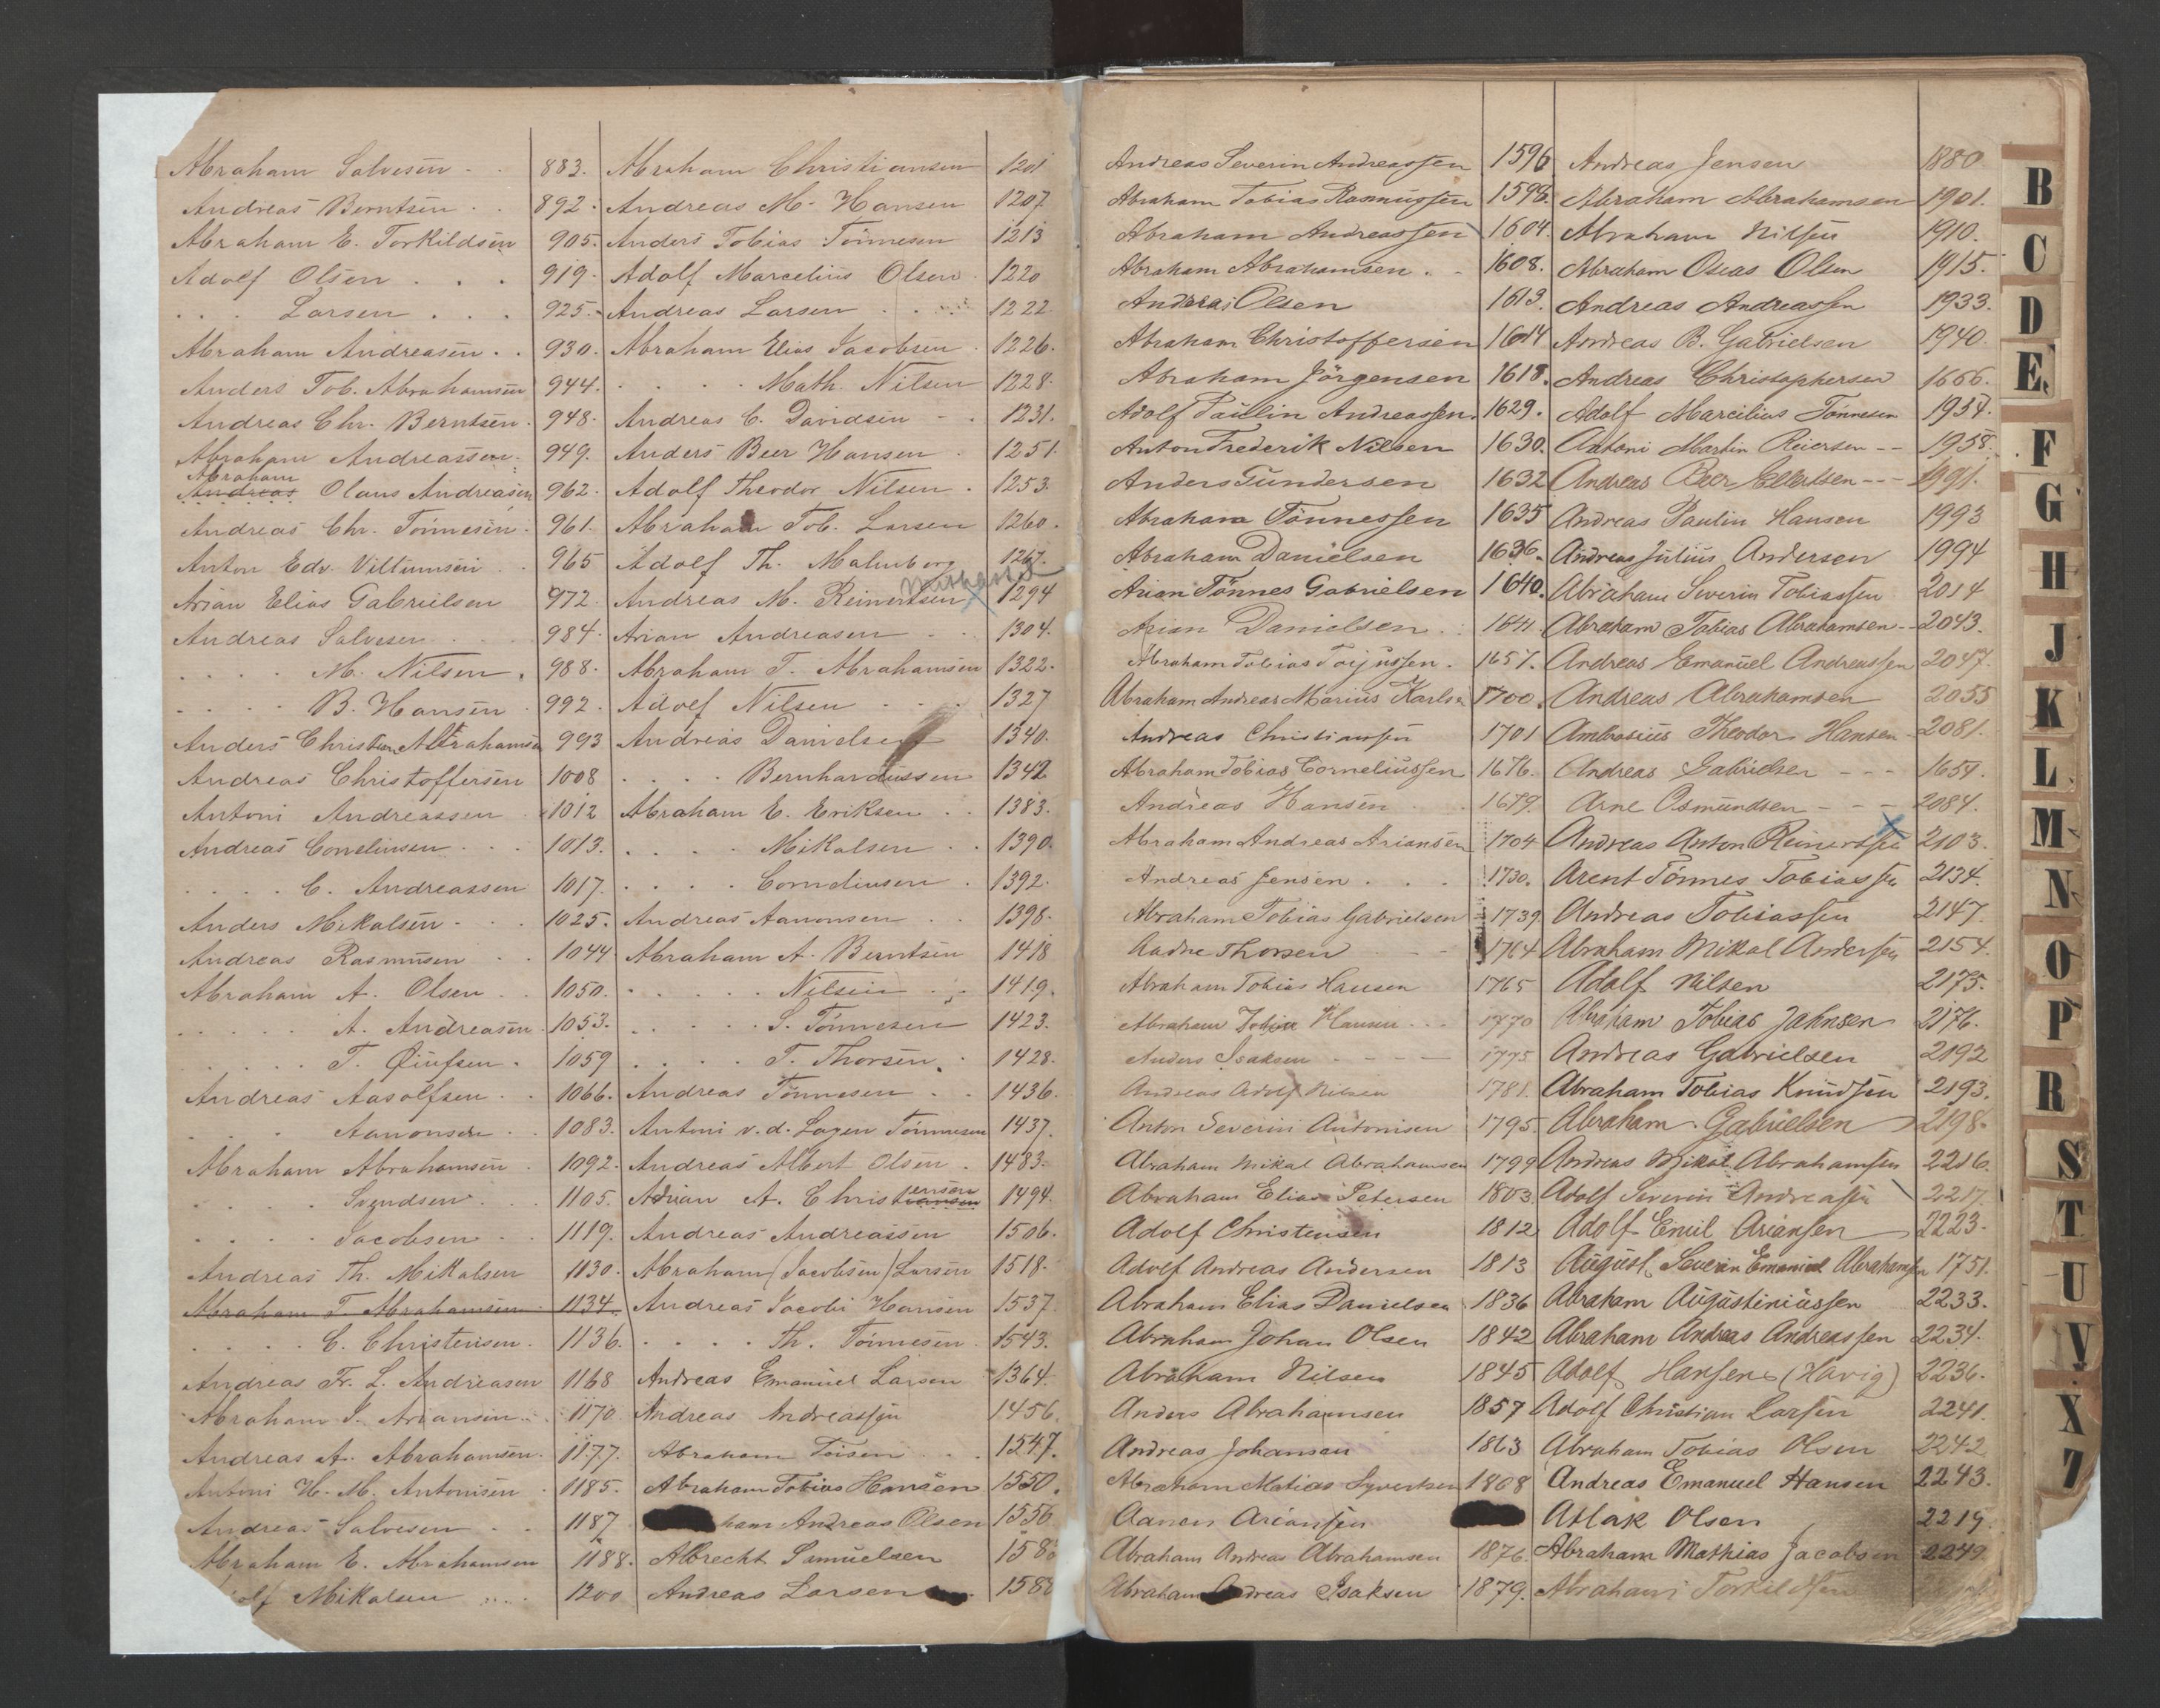 Abraham Salvesen . . 883.
Andreas Berntsen . . 892.
Abraham E. Torkildsen 905.
Adolf Olsen . . . 919.
. . . Larsen . . . 925.
Abraham Andreasen . . 930.
Anders Tob. Abrahamsen 944.
Andreas Chr. Berntsen . 948.
Abraham Andreassen . 949.
Abraham
Andreas Olaus Andreasen 962.
Andreas Chr. Tönnesen . 961.
Anton Edv. Villumsen . . 965
Arian Elias Gabrielsen 972.
Andreas Salvesen . . . 984.
. . . . M. Nilsen . 988.
. . . . B. Hansen . 992.
Anders Christian Abrahamsen 993
Andreas Christoffersen 1008
Antoni Andreassen . 1012
Andreas Corneliusen . . . 1013.
. . . . C. Andreassen 1017.
Anders Mikalsen . . . 1025.
Andreas Rasmusen . . 1044
Abraham A. Olsen . . 1050.
. . . . . A. Andreasen . 1053.
. . . . . T. . 1059
Andreas Aasolfsen . . 1066.
. . . Aanonsen . . 1083.
Abraham Abrahamsen . 1092.
. . . . Svendsen . . . 1105.
. . . . Jacobsen . . 1119.
Andreas Th. Mikalsen 1130.
Abraham T. Abrahamsen . 1134.
. . . . C. Christensen . 1136.
Andreas Fr. L. Andreasen 1168
Abraham J. Ariansen . . 1170
Andreas A. Abrahamsen . 1177.
Antoni H. M. Antonisen . 1185.
Andreas Salvesen . . 1187
Abraham E. Abrahamsen 1188.
olf Mikalsen . . . 1200
Abraham Christiansen 1201
Andreas M. Hansen 1207
Anders Tobias Tönnesen 1213
Adolf Marcelius Olsen . 1220
Andreas Larsen . . . . 1222.
Abraham Elias Jacobsen . 1226.
. . . . Math. Nilsen 1228.
Andreas C. Davidsen . . 1231.
Anders Beer Hansen . 1251.
Adolf Theodor Nilsen . 1253.
Abraham Tob. Larsen 1260.
Adolf Th. Malmborg 1267.
Andreas M. Reinertsen 1294
Arian Andreasen . . . 1304.
Abraham T. Abrahamsen 1322.
Adolf Nilsen . . . . 1327
Andreas Danielsen 1340.
. . . . Bernhardussen 1342
Abraham E. Eriksen . . 1383.
. . . . Mikalsen . . 1390.
. . . . Corneliusen . 1392.
Andreas Aanonsen . . 1398.
Abraham A. Berntsen 1418
. . . . . Nilsen . . 1419.
. . . . . S. Tönnesen 1423.
. . . . T. Thorsen . . 1428.
Andreas Tönnesen . . 1436.
Antoni v. d. Lagen Tönnesen 1437.
Andreas Albert Olsen . 1483.
ensen
Adrian A. Christiansen 1494.
Andreas Andreassen 1506.
Abraham (Jacobsen) Larsen 1518.
Andreas Jacobi Hansen 1537.
. . . . Th. Tönnesen . 1543.
Andreas Emanuel Larsen 1364.
Andreas Andreassen 1456.
Abraham Toisen . . 1547.
Abraham Tobias Hansen 1550.
ham Andreas Olsen 1556
Albrecht Samuelsen 158
Andreas Larsen 1588
Andreas Severin Andreassen 1596
Abraham Tobias Rasmussen 1598.
Abraham Andreassen 1604.
Abraham Abrahamsen . . 1608.
Andreas Olsen 1613.
Abraham Christoffersen 1614
Abraham Jörgensen 1618.
Adolf Paulin Andreassen. 1629.
Anton Frederik Nilsen 1630.
Anders Gundersen 1632
Abraham Tönnessen 1635
Abraham Danielsen 1636.
Arian Tönnes Gabrielsen 1640.
Arian Danielsen . . 1641.
Abraham Tobias Torjussen . 1657.
Abraham Andreas Marius Karlsn 1700.
Andreas Christiansen 1701
Abraham Tobias Corneliussen 1676.
Andreas Hansen . . 1679.
Abraham Andreas Ariansen 1704
Andreas Jensen . . . 1730.
Abraham Tobias Gabrielsen 1739
Aadne Thorsen . . 1764
Abraham Tobias Hansen 1765
Abraham Tobias Hansen . . . 1770
Anders Isaksen - - - 1775
Andreas Adolf Nilsen 1781.
Anton Severin Antonisen 1795.
Abraham Mikal Abrahamsen 1799
Abraham Elias Petersen 1803.
Adolf Christensen 1812
Adolf Andreas Andersen 1813
Abraham Elias Danielsen 1836
Abraham Johan Olsen 1842
Abraham Nilsen 1845
Anders Abrahamsen 1857
Andreas Johansen 1863
Abraham Matias Syvertsen 1868
Aanen Ariansen
Abraham Andreas Abrahamsen 1876.
Abraham Andreas Isaksen 1879.
Andreas Jensen 1880
Abraham Abrahamsen 1901.
Abraham Nilsen 1910.
Abraham Oseas Olsen 1915.
Andreas Andreassen 1933.
Andreas B. Gabrielsen 1940.
Andreas Christophersen 1666.
Adolf Marcilius Tönnesen 1954.
Antoni Martin Reiersen -- 1958.
Andreas Beer Ellertsen --- 1991.
Andreas Paulin Hansen 1993
Andreas Julius Andersen 1994
Abraham Severin Tobiassen 2014
Abraham Tobias Abrahamsen -- 2043.
Andreas Emanuel Andreassen 2047.
Andreas Abrahamsen 2055
Ambrosius Theodor Hansen - 2081.
Andreas Gabrielsen - - - 1654.
Arne Osmundsen - - - 2084.
Andreas Anton Reinertsen 2103.
Arent Tönnes Tobiassen 2134.
Andreas Tobiassen 2147.
Abraham Mikal Andersen 2154.
Adolf Nilsen 2175.
Abraham Tobias Jahnsen 2176.
Andreas Gabrielsen 2192
Abraham Tobias Knudsen 2193.
Abraham Gabrielsen 2198.
Andreas Mikal Abrahamsen 2216.
Adolf Severin Andreasen 2217.
Adolf Emil Ariansen 2223.
August Severin Emanuel Abrahamsen 1751.
Abraham Augustiniussen 2233.
Abraham Andreas Andreassen 2234.
Adolf Hansen (Havig) 2236.
Adolf Christian Larsen 2241.
Abraham Tobias Olsen 2242
Andreas Emanuel Hansen 2243.
Atlak Olsen 2219.
Abraham Mathias Jacobsen 2249.
Abraham Torkildsen
B
C
D
E
F
G
H
J
K
L
M
N
O
P
R
S
T
U
V
X